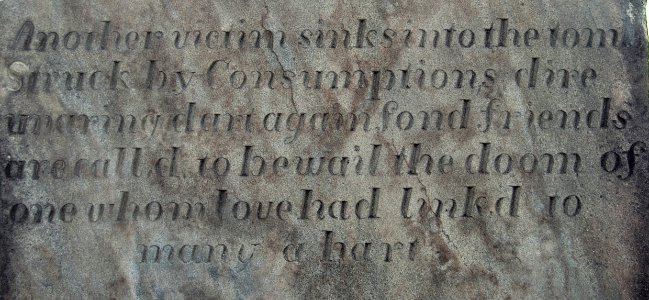 Another victim sinks into the tom
Struck by Consumptions dire
unaring dart again fond friends
are call,d to bewail the doom of
one whom love had link,d to
many a hart